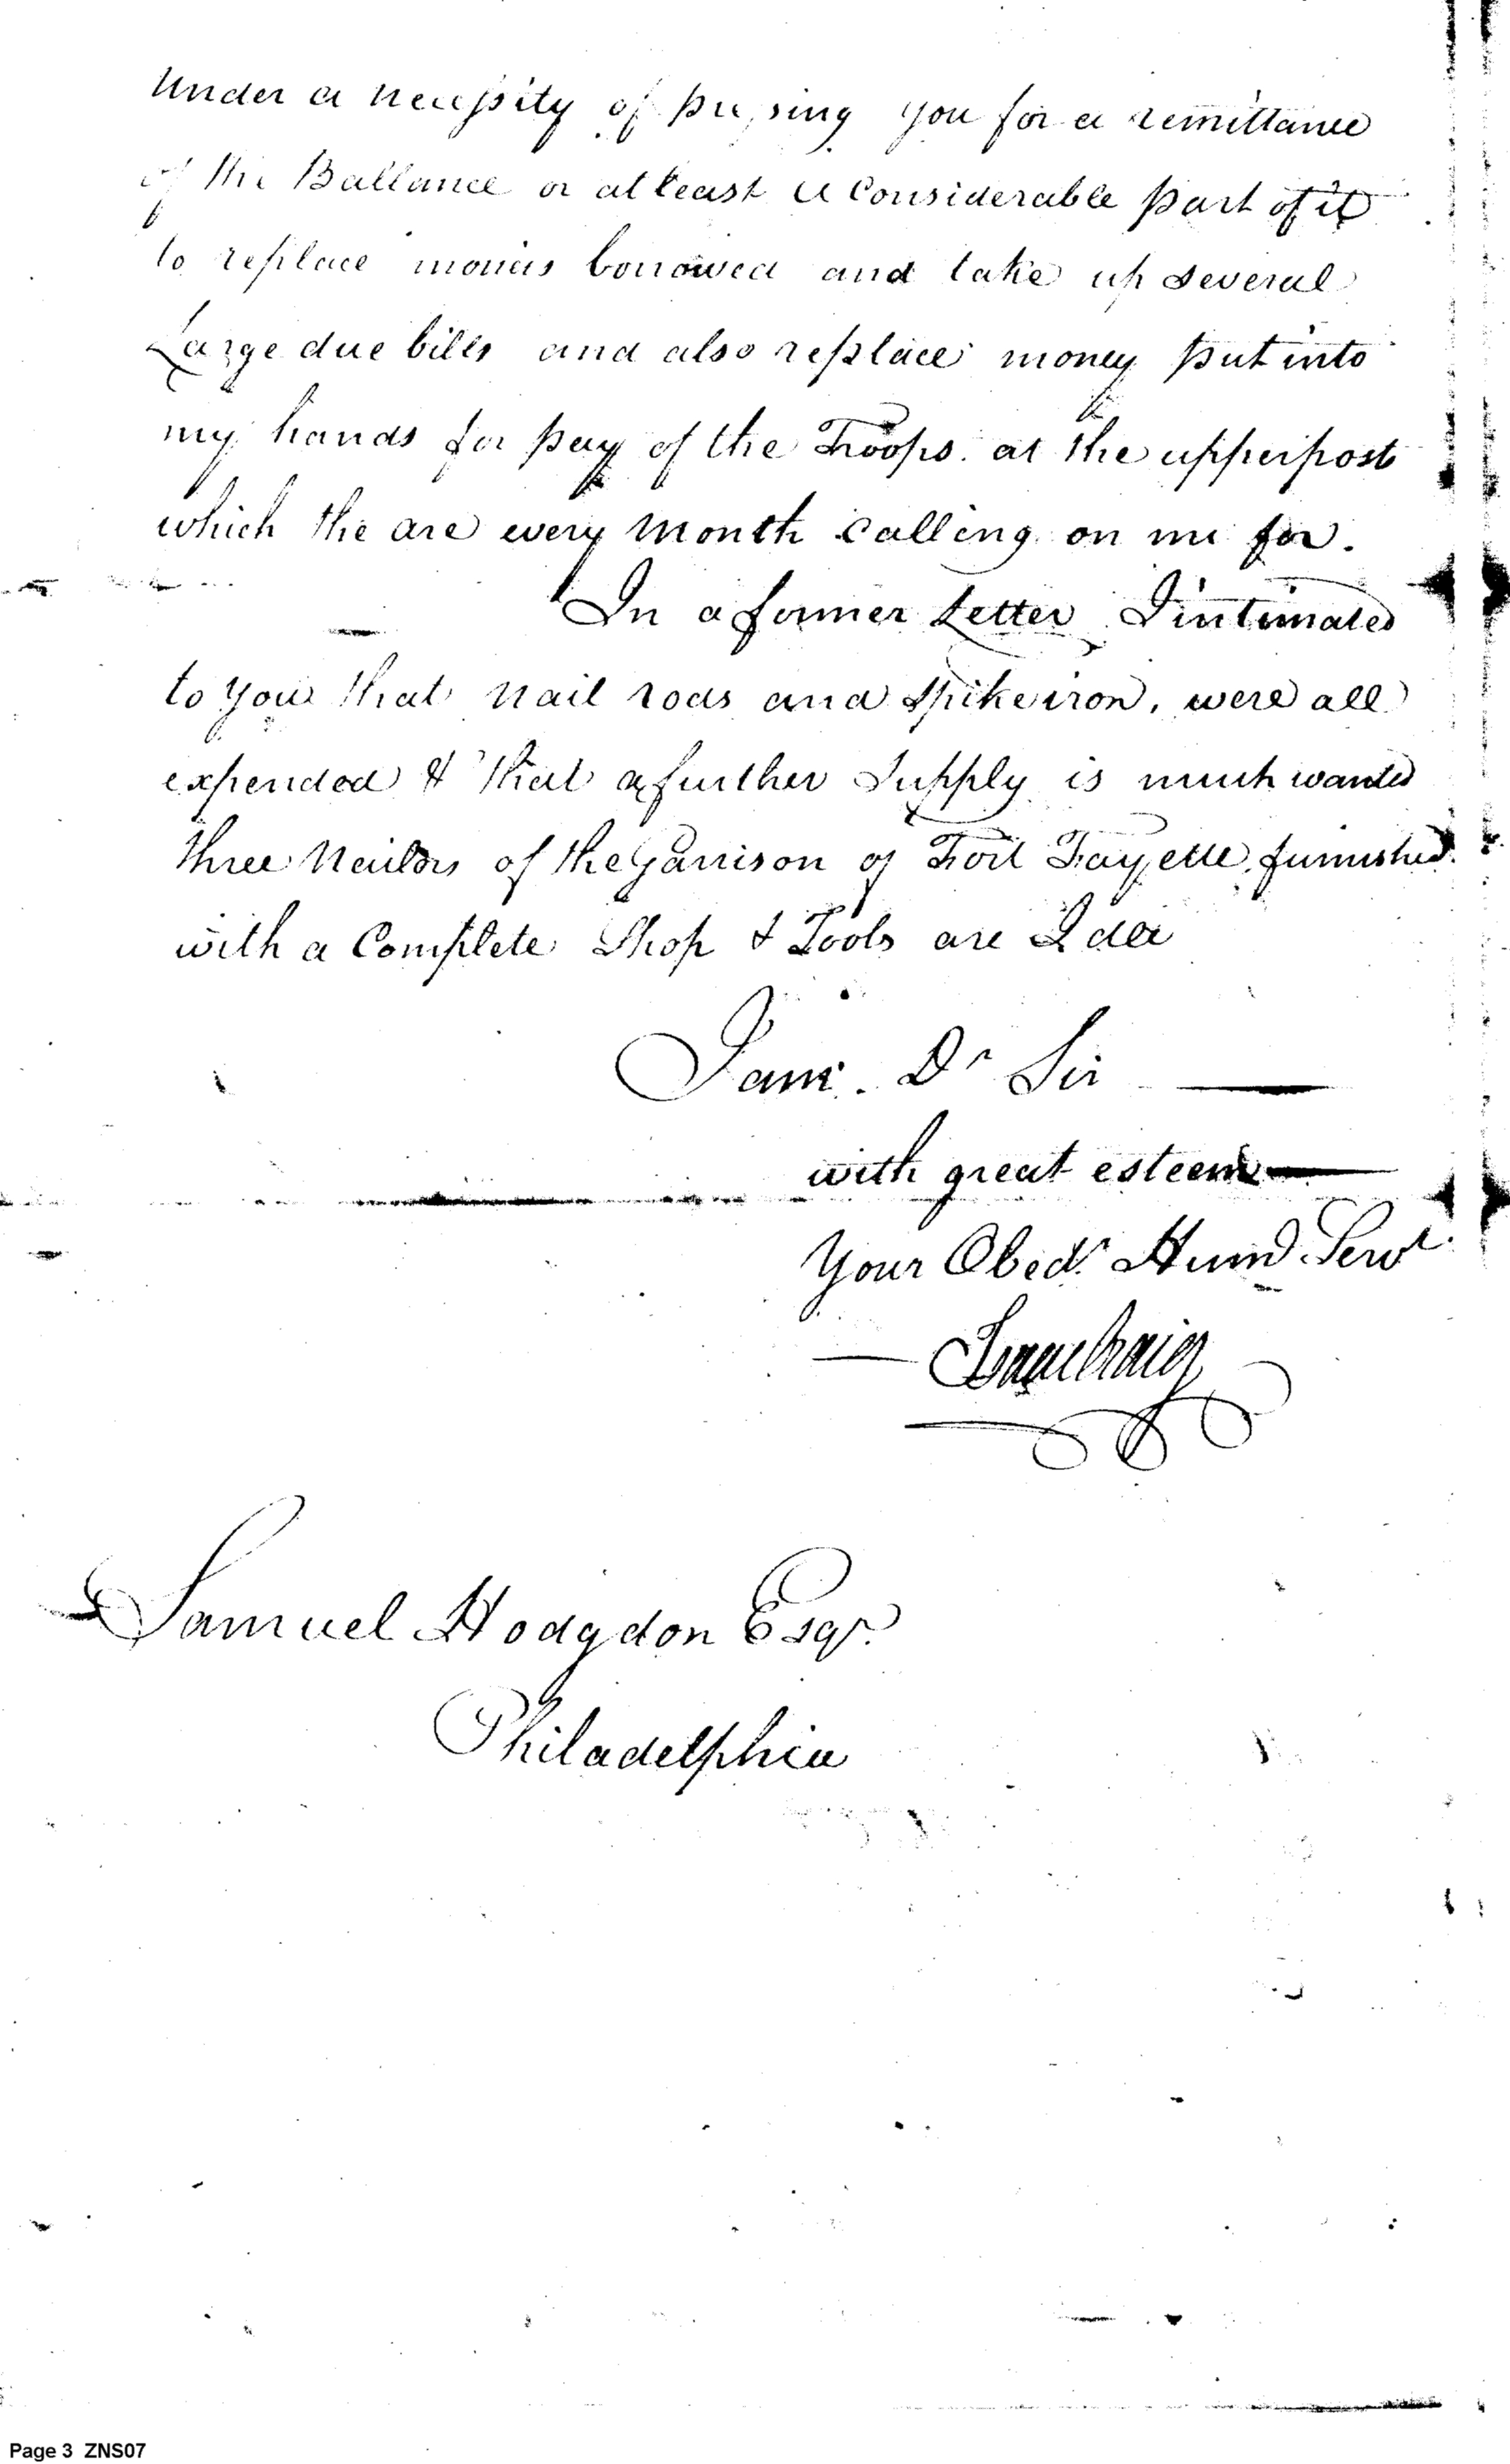 Under a necessity of pressing you for a remittance
of the Ballance or at least a Considerable part of it
to replace monies borrowed and take up several
Large due bills and also replace money put into
my hands for pay of the Troops at the upper post
which the are every Month Calling on me for.
In a former Letter I intimated
to you that Nail rods and Spike iron, were all
expended & that a further Supply is much wanted
three Nailors of the Garrison of Fort Fayette, furnished
with a Complete Shop & Tools are Idle
I am. Dr Sir
with great esteem
Your Obedt Huml Servt
Isaac Craig
Samuel Hodgdon Esqr.
Philadelphia
Page 3 ZNS07